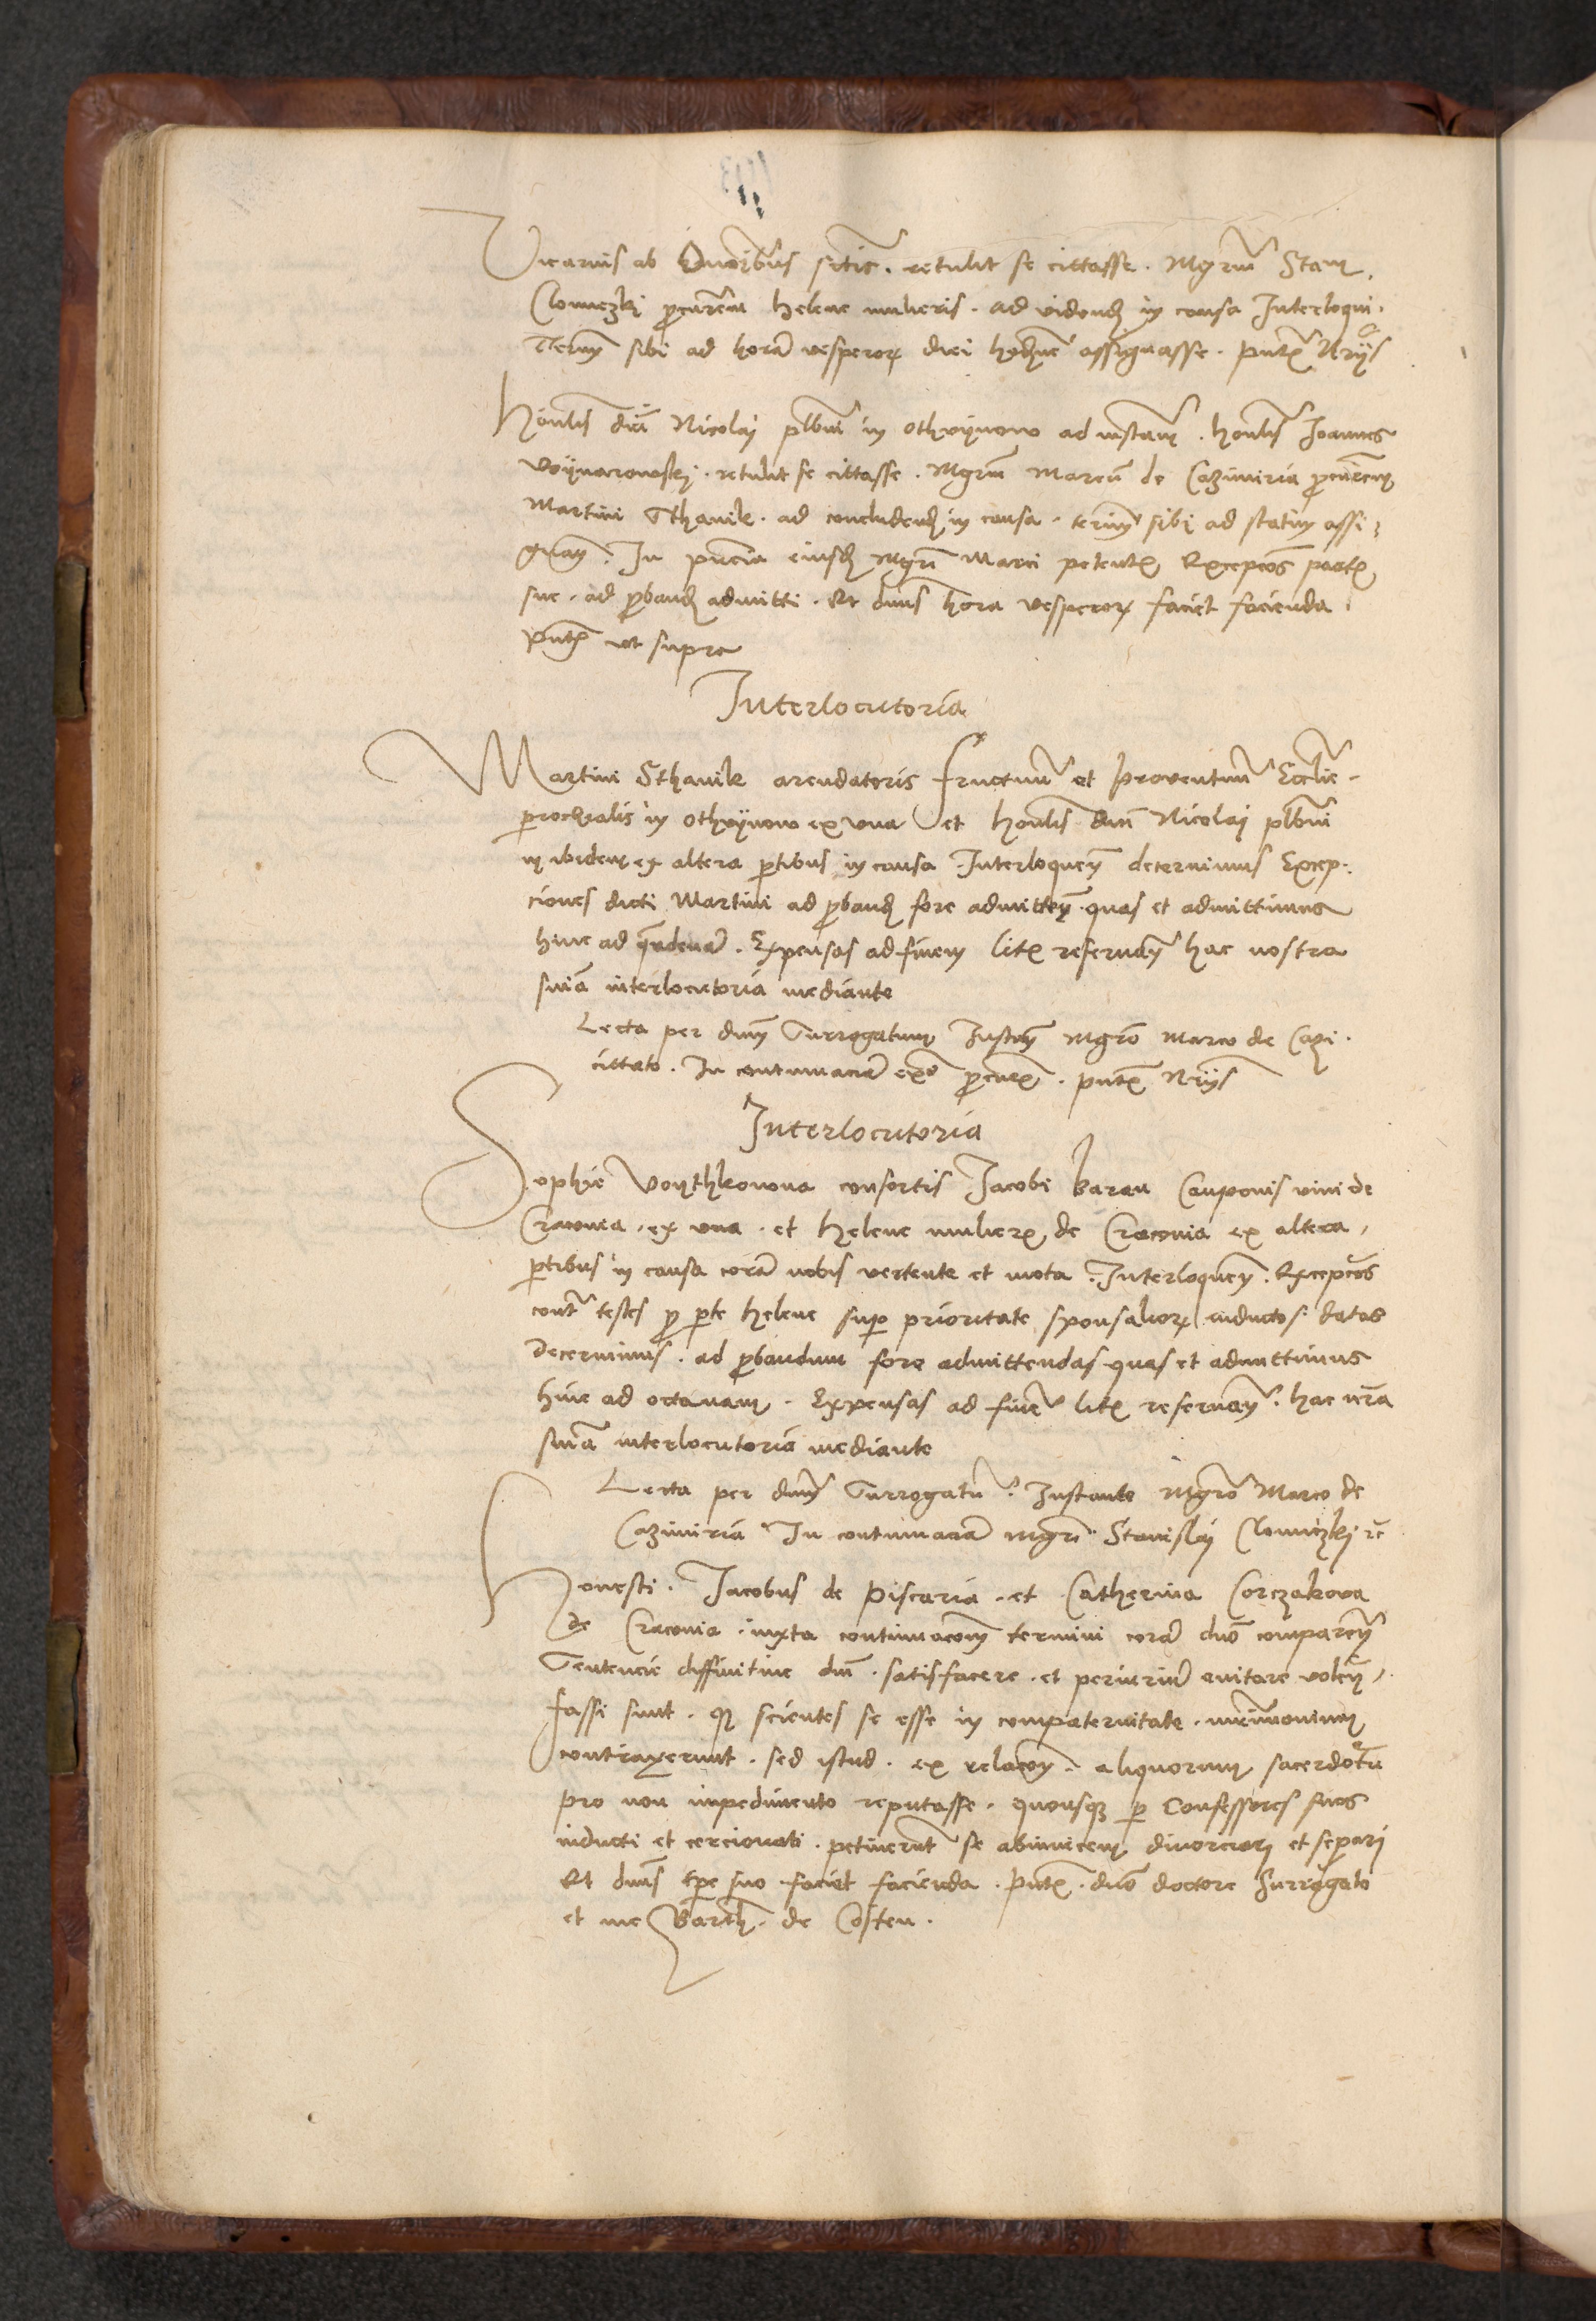 Vicarius ab omnibus sctis. retulit se cittasse. Mgrum Stani.
Clomczkj procurem helene mulieris. ad vidend in causa Interloqui.
Termn sibi ad horam vesperor diei hodierne assignasse. pntx Nrijs
honlis dni Nicolaj plbni in othvijnow ad instanc. honlis Joannes
Voijnarowskj. retulit se cittasse. Mgrm Marcu de Cazimiria procurem
Martini Sthanik. ad concludend in causa. termn sibj ad statim assi
gnan. In pncia eiusd mgri Marci petentx Excepcos partx
sue. ad proband admitti. Et dnus hora vesperor faciet facienda.
pntx ut supra
Interlocutoria
Martini Sthanik arendatoris fructuum et proventuum Ecclie
parochialis in othvijnow ex vna et honlis dni Nicolaj plbni
in ibidem ex altera ptibus in causa Interloquen decernimus Excep
ciones dicti Martini ad proband fore admitten. quas et admittimus
hinc ad quindenam. Expensas ad finem litx reservan hac nostra
snia interlocutoria mediante
Lecta per dnm Surrogatum Instan Mgro Marco de Cazi.
cittato. In contumaciam procurx. pntx Nrijs
Interlocutoria
Sophie Voythkowna consortis Jacobi Baran Cauponis vini de
Cracovia. ex vna. et helene mulierx de Cracovia ex altera.
ptibus in causa coram nobis vertente et mota. Interloquen. Excepcos
contra testes pro pte helene super prioritate sponsalior inductos datas
decernimus. ad probandum fore admittendas quas et admittimus
hinc ad octavam. Expensas ad fine litx reservan. hac nra
snia interlocutoria mediante
Lecta per dnm Surrogatu. Instante Mgro Marco de
Cazimiria In contumaciam Mgri Stanislaj Clomczkj rc
honesti. Jacobus de Piscaria. et Catherina Corczakowa
de Cracovia. iuxta continuacom termini coram dno comparen
Sentencie diffinitive dni. satisfacere. et periurium evitare volen.
fassi sunt. q scientes se esse in compaternitate. mrimonium
contraxerunt. sed istud. ex relacon. aliquorum sacerdotu
pro non impedimento reputasse. quousq p Confessores suos
inducti et cercionati. petiverunt se abinvicem divorciari et separi
Et dnus tpe suo faciet facienda. pntx. dno doctore Surrogato
et me Barth. de Costen.